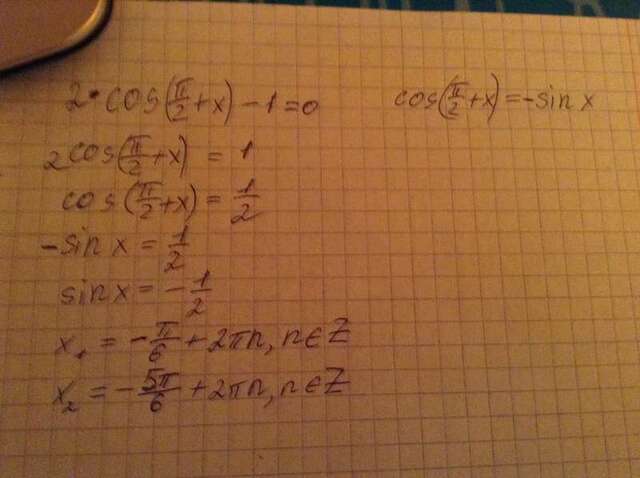 2·cos(π/2+x)-1=0
cos(π/2+x)=-sin x
2cos(π/2+x)=1
cos(π/2+x)=1/2
-sin x=1/2
sin x=-1/2
x₁=-π/6+2πn, n∈Z
x₂=-5π/6+2πn, n∈Z